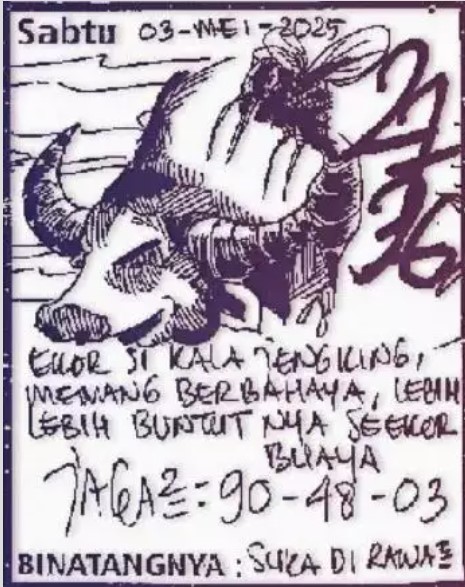 Sabtu 03-MEI-2025
27
36
EKOR SI KALA JENGKING,
MEMANG BERBAHAYA, LEBIH
LEBIH BUNTUT NYA SEEKOR
BUAYA
JAGA2=90-48-03
BINATANGNYA : SUKA DI RAWA2